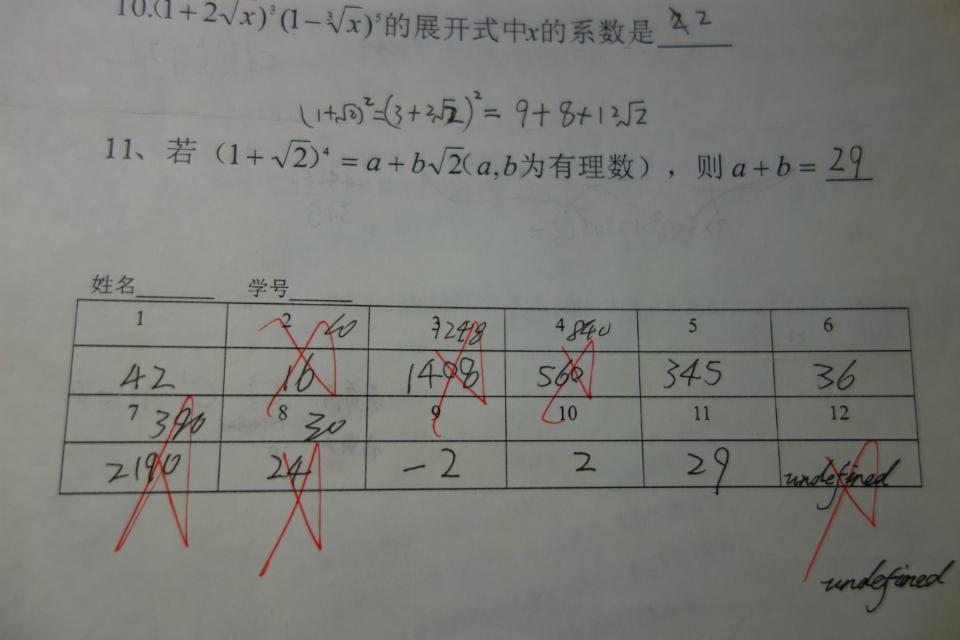 10.(1+2√x)³(1-∛x)⁵的展开式中x的系数是 2
(1+√2)²=(3+2√2)²= 9+8+12√2
11、若（1+√2)⁴=a+b√2(a,b为有理数），则a+b= 29
姓名______ 学号______
1 2 3 4 840 5 6
42 16 1408 560 345 36
7 390 8 30 9 10 11 12
2190 24 -2 2 29 undefined
undefined